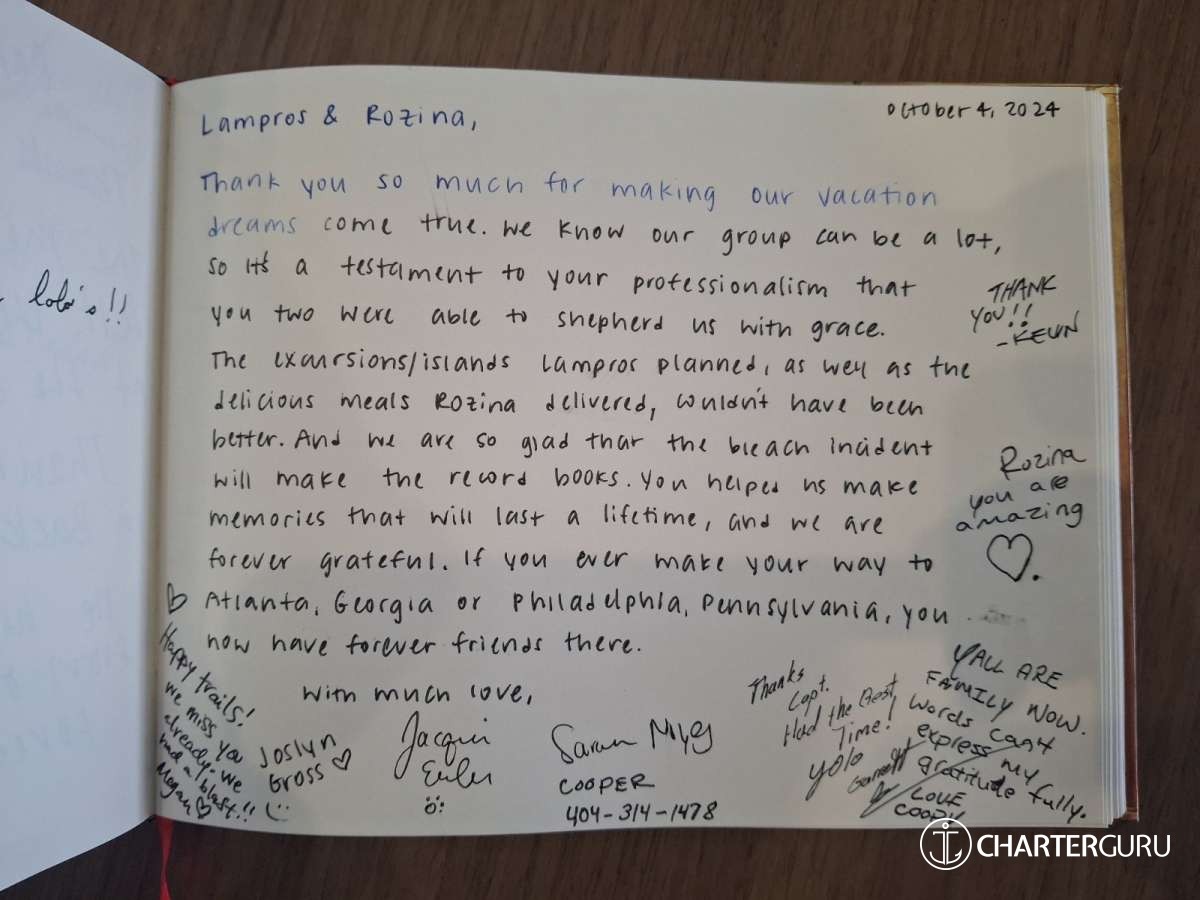 lolo's!!
October 4, 2024
Lampros & Rozina,
Thank you so much for making our vacation
dreams come true. We know our group can be a lot,
so it's a testament to your professionalism that
you two were able to shepherd us with grace.
The excursions/islands Lampros planned, as well as the
delicious meals Rozina delivered, couldn't have been
better. And we are so glad that the bleach incident
will make the record books. You helped us make
memories that will last a lifetime, and we are
forever grateful. If you ever make your way to
Atlanta, Georgia or Philadelphia, Pennsylvania, you
now have forever friends there.
With much love,
THANK
YOU!!
-KEVIN
Rozina
you are
amazing
Happy trails!
we miss you
already. we
had a blast!!
Megan
Joslyn
Gross
Jacqui
Sarah
COOPER
404-314-1478
Thanks
Capt.
Had the Best
Time!
yolo
Garrett
YALL ARE
FAMILY NOW.
Words can't
express my
gratitude fully.
LOVE
CHARTERGURU